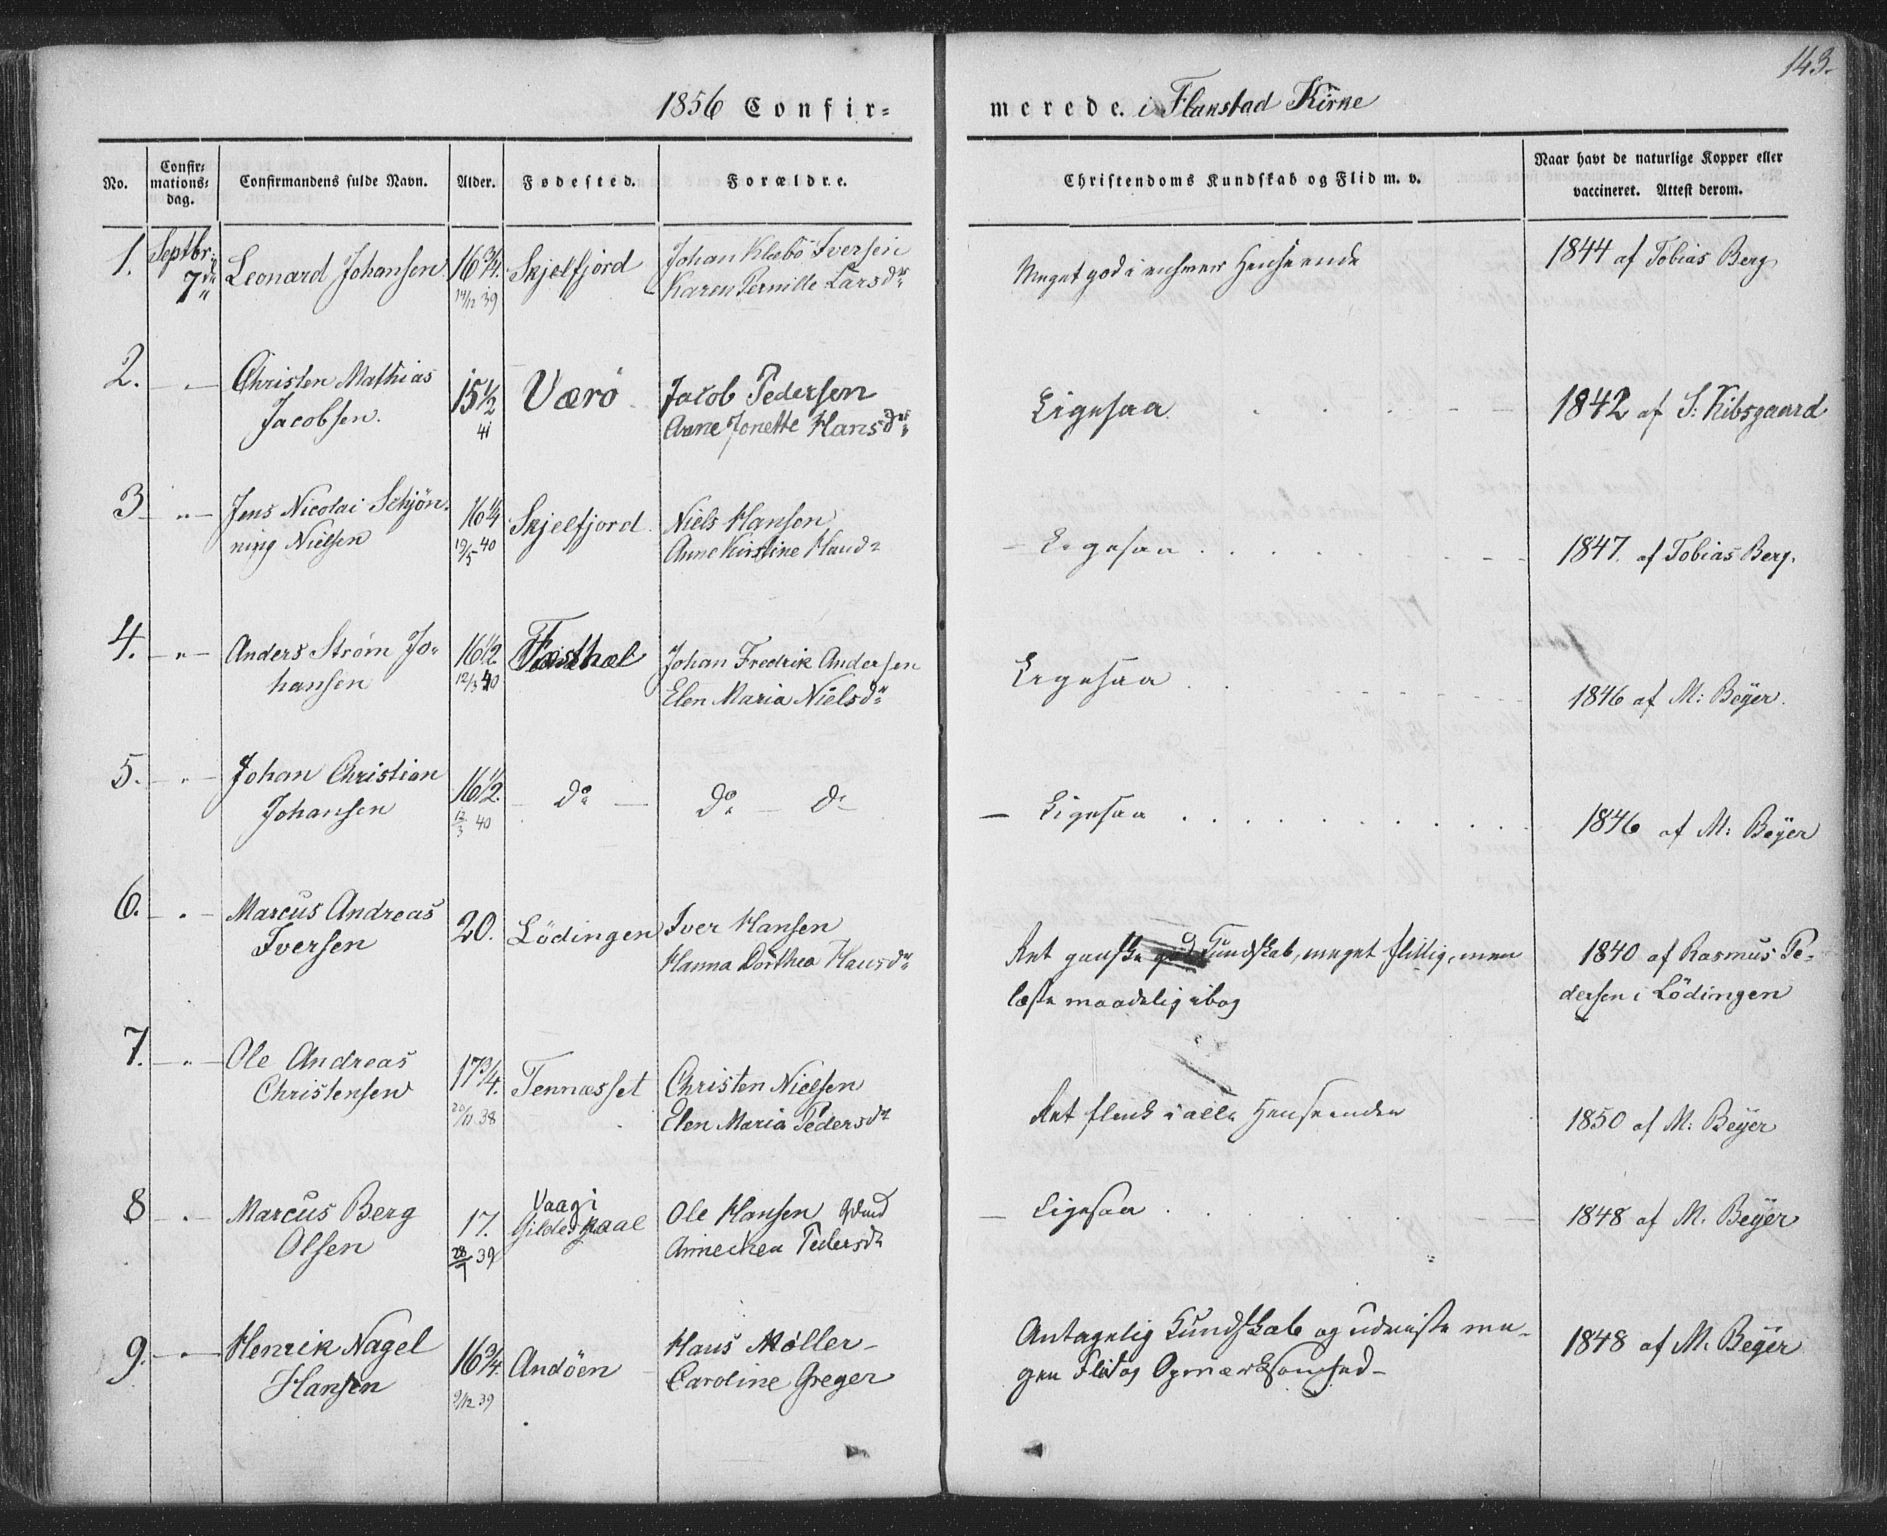 143.
1856 Confir= merede. i Flakstad Kirke
No. Confir= mations= dag. Confirmandens fulde Navn. Alder. Fødested. Forældre. Christendoms Kundskab og Flid m. v. Naar havt de naturlige Kopper eller vaccineret. Attest derom.
1. Septbr. Leonard Johansen 16 3/4. Skjelfjord Johan Klæbo Iversen Meget god i enhver Henseende 1844 af Tobias Berg
7de 14/12 39 Karen Pernille Larsdr
2. — " — Christen Mathias 15 1/2 Værö Jacob Pedersen Ligesaa 1842 af S: Kibsgaard
Jacobsen. 41 Anne Jonette Hansdr
3 — " — Jens Nicolai Schjön- 16 1/4 Skjelfjord Niels Hansen — Ligesaa 1847. af Tobias Berg.
ning Nielsen 19/5 40 Anne Kirstine Hansdr
4. — " — Anders Strøm Jo- 16 1/2 Johan Fredrik Andersen Ligesaa 1846 af M: Beÿer.
hansen 12/3 40 Elen Maria Nielsdr
5. — " — Johan Christian 16 1/2. — do — do — do — Ligesaa 1846 af M: Beÿer
Johansen 12/3 40
6. — " — Marcus Andreas 20. Lödingen Iver Hansen Ret ganske god Kundskab, meget flittig, men 1840 af Rasmus Pe-
Iversen Hanna Dorthea Hansdr læste maadelig i bog dersen i Lödingen
7. — " — Ole Andreas 17 3/4. Tennæsset Christen Nielsen Ret flink i alle Henseender 1850 af M: Beÿer
Christensen 20/11 38 Elen Maria Pedersdr
8 — " — Marcus Berg 17. Vaag i Gildeskaal Ole Hansen — Ligesaa 1848 af M. Beÿer
Olsen 28/9 39 Annichen Pedersdr
9. — " — Henrik Nagel 16 3/4. Andöen Hans Møller — Antagelig Kundskab og udviste me- 1848 af M. Beÿer
Hansen 9/12 39 Caroline Greger gen Flid og Opmærksomhed —